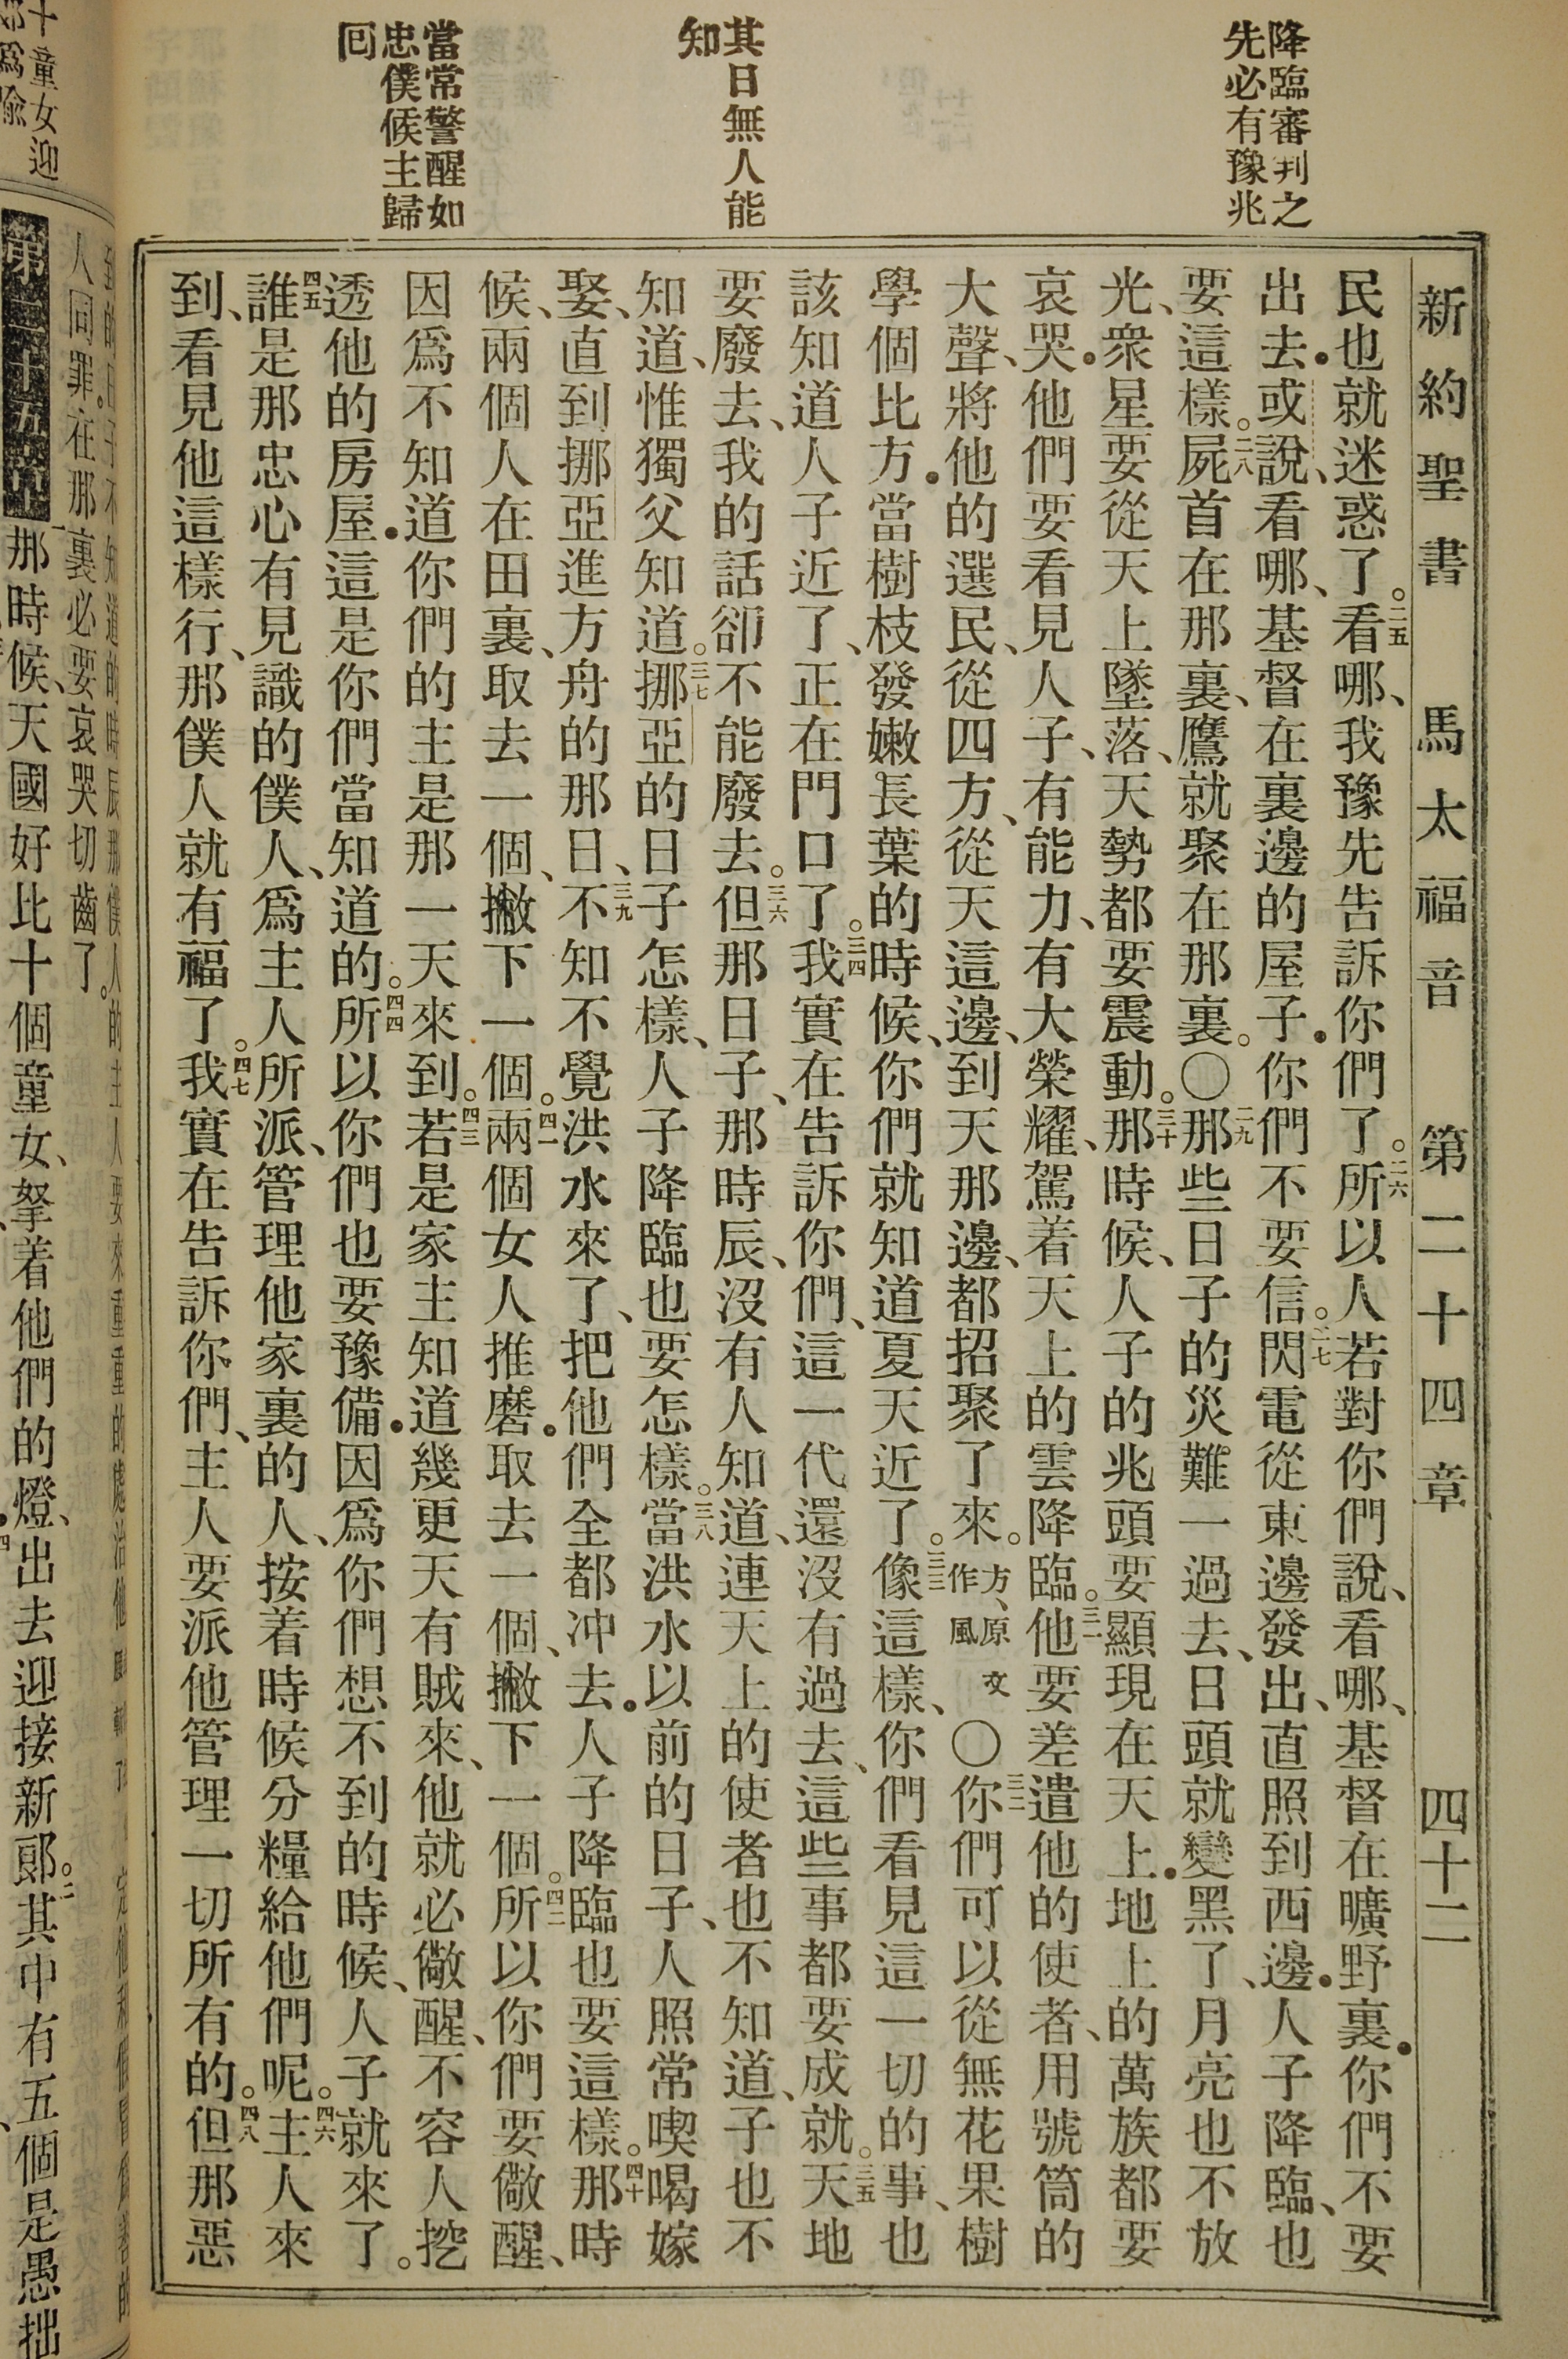 降臨審判之
先必有豫兆
其日無人能
知
當常警醒如
忠僕候主歸
囘
新約聖書 馬太福音 第二十四章 四十二
民也就迷惑了。二五看哪、我豫先告訴你們了。二六所以人若對你們說、看哪、基督在曠野裏．你們不要
出去．或說、看哪、基督在裏邊的屋子．你們不要信。二七閃電從東邊發出、直照到西邊．人子降臨、也
要這樣。二八屍首在那裏、鷹就聚在那裏。〇二九那些日子的災難一過去、日頭就變黑了、月亮也不放
光、衆星要從天上墜落、天勢都要震動。三十那時候、人子的兆頭要顯現在天上．地上的萬族都要
哀哭．他們要看見人子、有能力、有大榮耀、駕着天上的雲降臨。三一他要差遣他的使者、用號筒的
大聲、將他的選民、從四方、從天這邊、到天那邊、都招聚了來。方、原文作風 〇三二你們可以從無花果樹
學個比方．當樹枝發嫩長葉的時候、你們就知道夏天近了。三三像這樣、你們看見這一切的事、也
該知道人子近了、正在門口了。三四我實在告訴你們、這一代還沒有過去、這些事都要成就。三五天地
要廢去、我的話卻不能廢去。三六但那日子、那時辰、沒有人知道、連天上的使者也不知道、子也不
知道、惟獨父知道。三七挪亞的日子怎樣、人子降臨也要怎樣。三八當洪水以前的日子、人照常喫喝嫁
娶、直到挪亞進方舟的那日、三九不知不覺洪水來了、把他們全都冲去．人子降臨也要這樣。四十那時
候、兩個人在田裏、取去一個、撇下一個。四一兩個女人推磨．取去一個、撇下一個。四二所以你們要儆醒、
因爲不知道你們的主是那一天來到。四三若是家主知道幾更天有賊來、他就必儆醒、不容人挖
透他的房屋．這是你們當知道的。四四所以你們也要豫備．因爲你們想不到的時候、人子就來了。
四五誰是那忠心有見識的僕人、爲主人所派、管理他家裏的人、按着時候分糧給他們呢。四六主人來
到、看見他這樣行、那僕人就有福了。四七我實在告訴你們、主人要派他管理一切所有的。四八但那惡
十童女迎
人同罪．在那裏必要哀哭切齒了。
第二十五章 那時候、天國好比十個童女、拏着他們的燈、出去迎接新郞。二其中有五個是愚拙